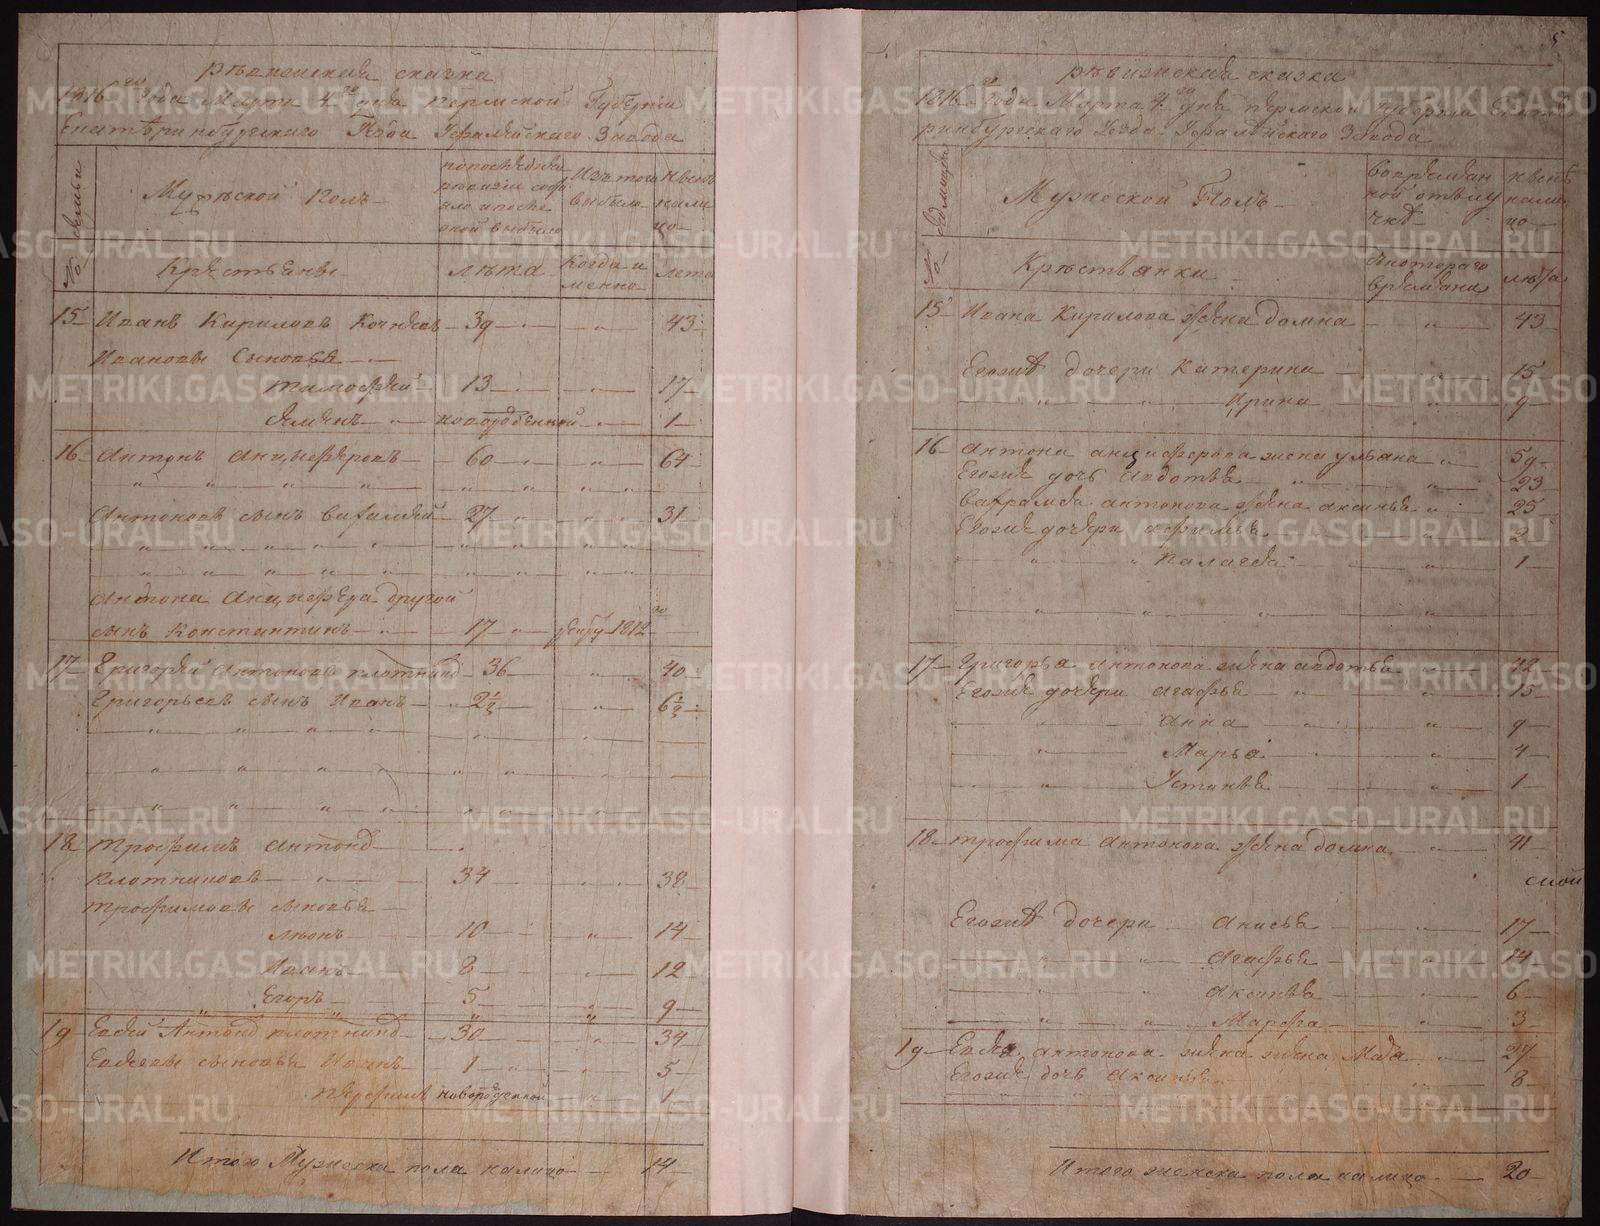 ревизская сказка
1816 года Марта 4 дня Пермской Губернии
Екатеринбургского Уезда Уфалейского Завода
№ семьи
Мужеской Полъ
по последней ревизии состояло и после оной выбыло
Изъ того выбыло
ныне на лицо
Крестьяне
лета
Когда и менно
лета
15 Иванъ Кириловъ 39 43
Ивановы Сыновья
тимофей 13 17
новорожденной 1
16 Антонъ Анциферовъ 60 64
Антоновъ сынъ 27 31
Антона Анциферова другой
сынъ Константинъ 17 1812
17 Григорей Антоновъ плотник 36 40
Григорьевъ сынъ Иванъ 2½ 6½
18 трофимъ Антонов
плотниковъ 34 38
трофимовы сыновья
10 14
Иванъ 8 12
Егоръ 5 9
19 Евсей Антонов плотник 30 34
Евсеевы сыновья Иванъ 1 5
новорожденной 1
Итого Мужеска пола налицо 14
5
ревизская сказка
1816 года Марта 4 дня пермской губернии Екате
ринбургскаго Уезда Уфалейскаго Завода
Мужеской Полъ
во временной отлучке
ныне на лицо
Крестьянки
с котораго времени
лета
15 Ивана Кирилова жена домна 43
Егожъ дочери Катерина 15
Ирина 9
16 Антона анциферова жена ульяна 59
Егоже дочь Авдотья 23
антонова жена аксинья 25
Егоже дочери 2
Палагея 1
17 Григорья Антонова жена авдотья 42
Егоже дочери агафья 15
Анна 9
Марья 4
Устинья 1
18 трофима Антонова жена домна 41
Егожъ дочери Анисья 17
Агафья 14
Аксинья 6
Марфа 3
19 Евсея антонова жена жена 27
Егоже дочь Аксинья 8
Итого женска пола налицо 20
METRIKI.GASO-URAL.RU